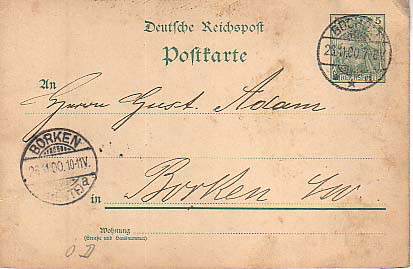 Deutsche Reichspost
Postkarte
5
BOCHOLT
26.11.00. 7-8V
An
Herrn Gust. Adam
BORKEN
26.11.00. 10-11V.
in Borken i/w.
Wohnung
(Straße und Hausnummer)